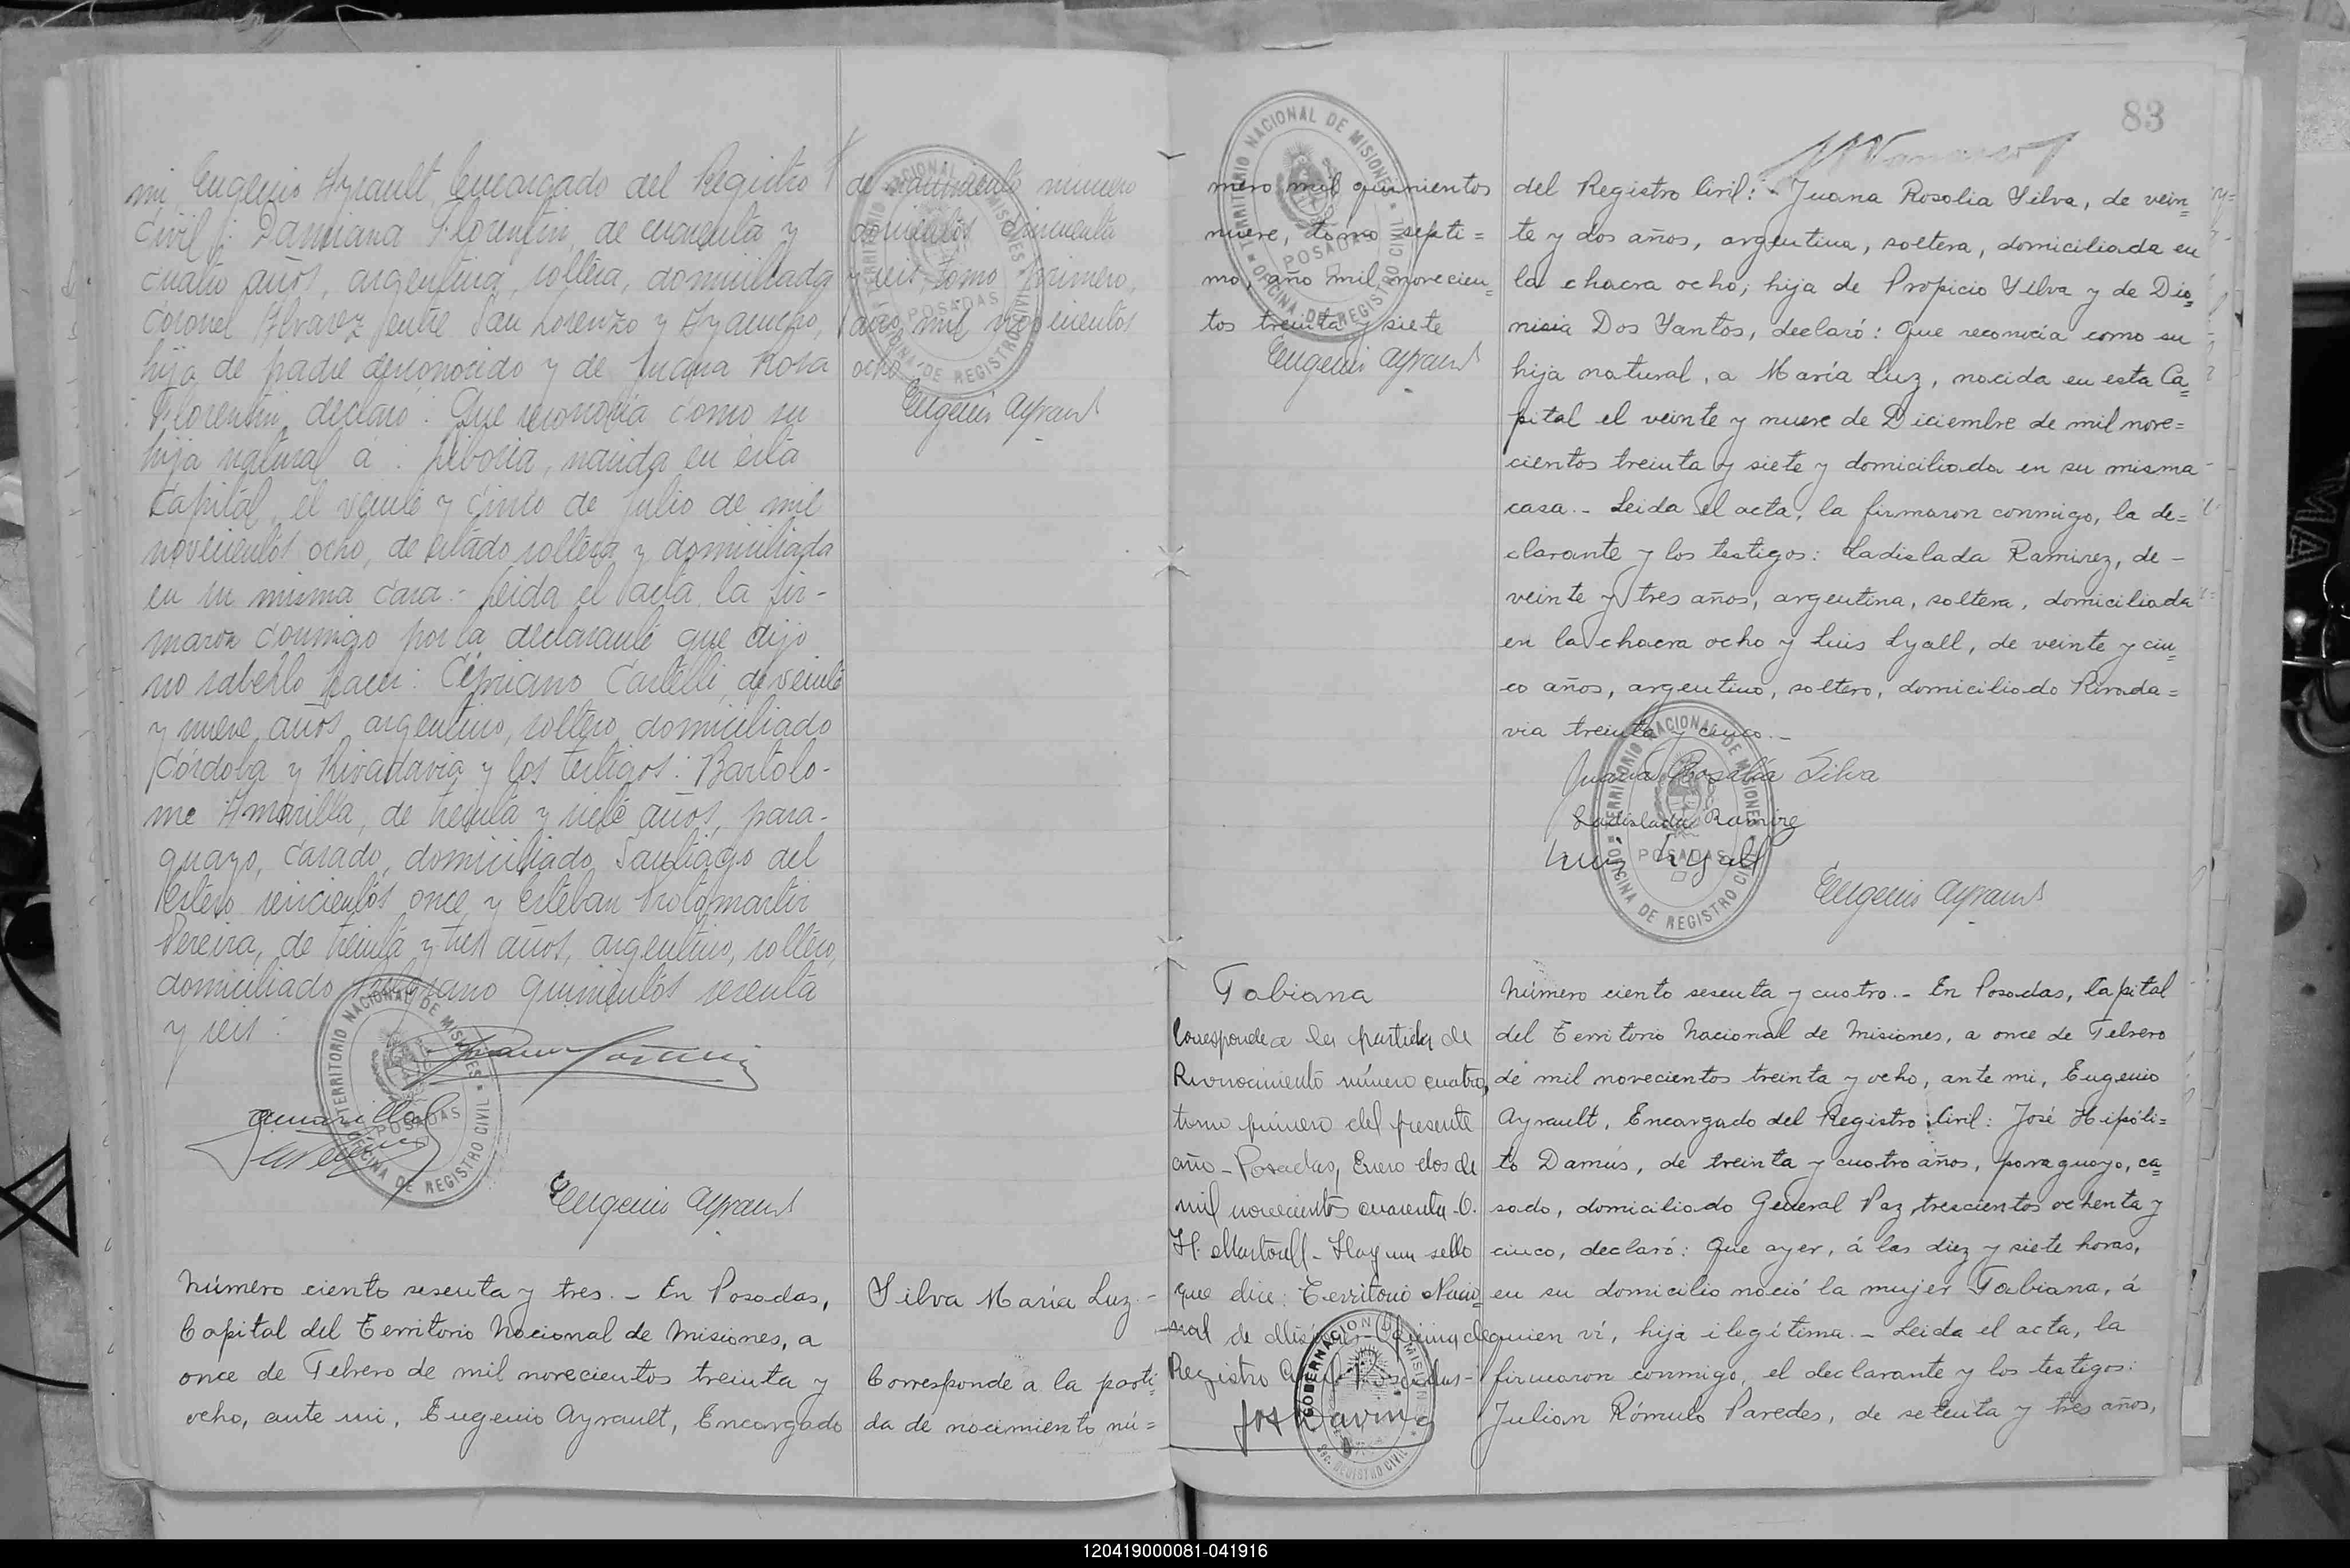 mi, Eugenio Ayrault, Encargado del Registro
Civil: Damiana Florentin, de cuarenta y
cuatro años, argentina, soltera, domiciliada
Coronel Alvarez entre San Lorenzo y Ayacucho,
hija de padre desconocido y de Juana Rosa
Florentin, declaró: Que reconocía como su
hija natural á: Liboria, nacida en esta
Capital, el veinte y cinco de Julio de mil
novecientos ocho, de estado soltera y domiciliada
en su misma casa.- Leida el acta, la fir-
maron conmigo por la declarante que dijo
no saberlo hacer: Cipriano Castelli, de veinte
y nueve años, argentino, soltero, domiciliado
Córdoba y Rivadavia y los testigos: Bartolo-
me Amarilla, de treinta y siete años, para-
guayo, casado, domiciliado Santiago del
Estero seiscientos once y Esteban Protomartir
Pereira, de treinta y tres años, argentino, soltero,
domiciliado quinientos sesenta
y seis:
Amarilla
Eugenio Ayrault
de nacimiento número
doscientos cincuenta
y seis, tomo primero,
año mil novecientos
ocho
Eugenio Ayrault
TERRITORIO NACIONAL DE MISIONES
OFICINA DE REGISTRO CIVIL
POSADAS
Número ciento sesenta y tres. - En Posadas,
Capital del Territorio Nacional de Misiones, a
once de Febrero de mil novecientos treinta y
ocho, ante mi, Eugenio Ayrault, Encargado
Silva María Luz.-
Corresponde a la parti=
da de nacimiento nú=
83
mero mil quinientos
nueve, tomo septi=
mo, año mil novecien=
tos treinta y siete
Eugenio Ayrault
TERRITORIO NACIONAL DE MISIONES
OFICINA DE REGISTRO CIVIL
POSADAS
del Registro Civil: Juana Rosolia Silva, de vein=
te y dos años, argentina, soltera, domiciliada en
la chacra ocho, hija de Propicio Silva y de Dio=
nisia Dos Santos, declaró: Que reconocía como su
hija natural, a María Luz, nacida en esta Ca=
pital el veinte y nueve de Diciembre de mil nove=
cientos treinta y siete y domiciliada en su misma
casa.- Leida el acta, la firmaron conmigo, la de=
clarante y los testigos: Ladislada Ramirez, de -
veinte y tres años, argentina, soltera, domiciliada
en la chacra ocho y Luis Lyall, de veinte y cin=
co años, argentino, soltero, domiciliado Rivada=
via treinta y cinco.-
Juana Rosalia Silva
Ladislada Ramirez
Luis Lyall
Eugenio Ayrault
TERRITORIO NACIONAL DE MISIONES
OFICINA DE REGISTRO CIVIL
POSADAS
Fabiana
Corresponde a la partida de
Reconocimiento número cuatro,
tomo primero del presente
año - Posadas, Enero dos de
mil novecientos cuarenta. O.
H. Martorell - Hay un sello
que dice: Territorio Nacio=
nal de Misiones - Oficina de
Registro Civil - Posadas -
GOBERNACION DE MISIONES
REGISTRO CIVIL
Número ciento sesenta y cuatro.- En Posadas, Capital
del Territorio Nacional de Misiones, a once de Febrero
de mil novecientos treinta y ocho, ante mi, Eugenio
Ayrault, Encargado del Registro Civil: José Hipóli=
to Damús, de treinta y cuatro años, paraguayo, ca=
sado, domiciliado General Paz, trescientos ochenta y
cinco, declaró: Que ayer, á las diez y siete horas,
en su domicilio nació la mujer Fabiana, á
quien ví, hija ilegítima.- Leida el acta, la
firmaron conmigo, el declarante y los testigos:
Julian Rómulo Paredes, de setenta y tres años,
120419000081-041916